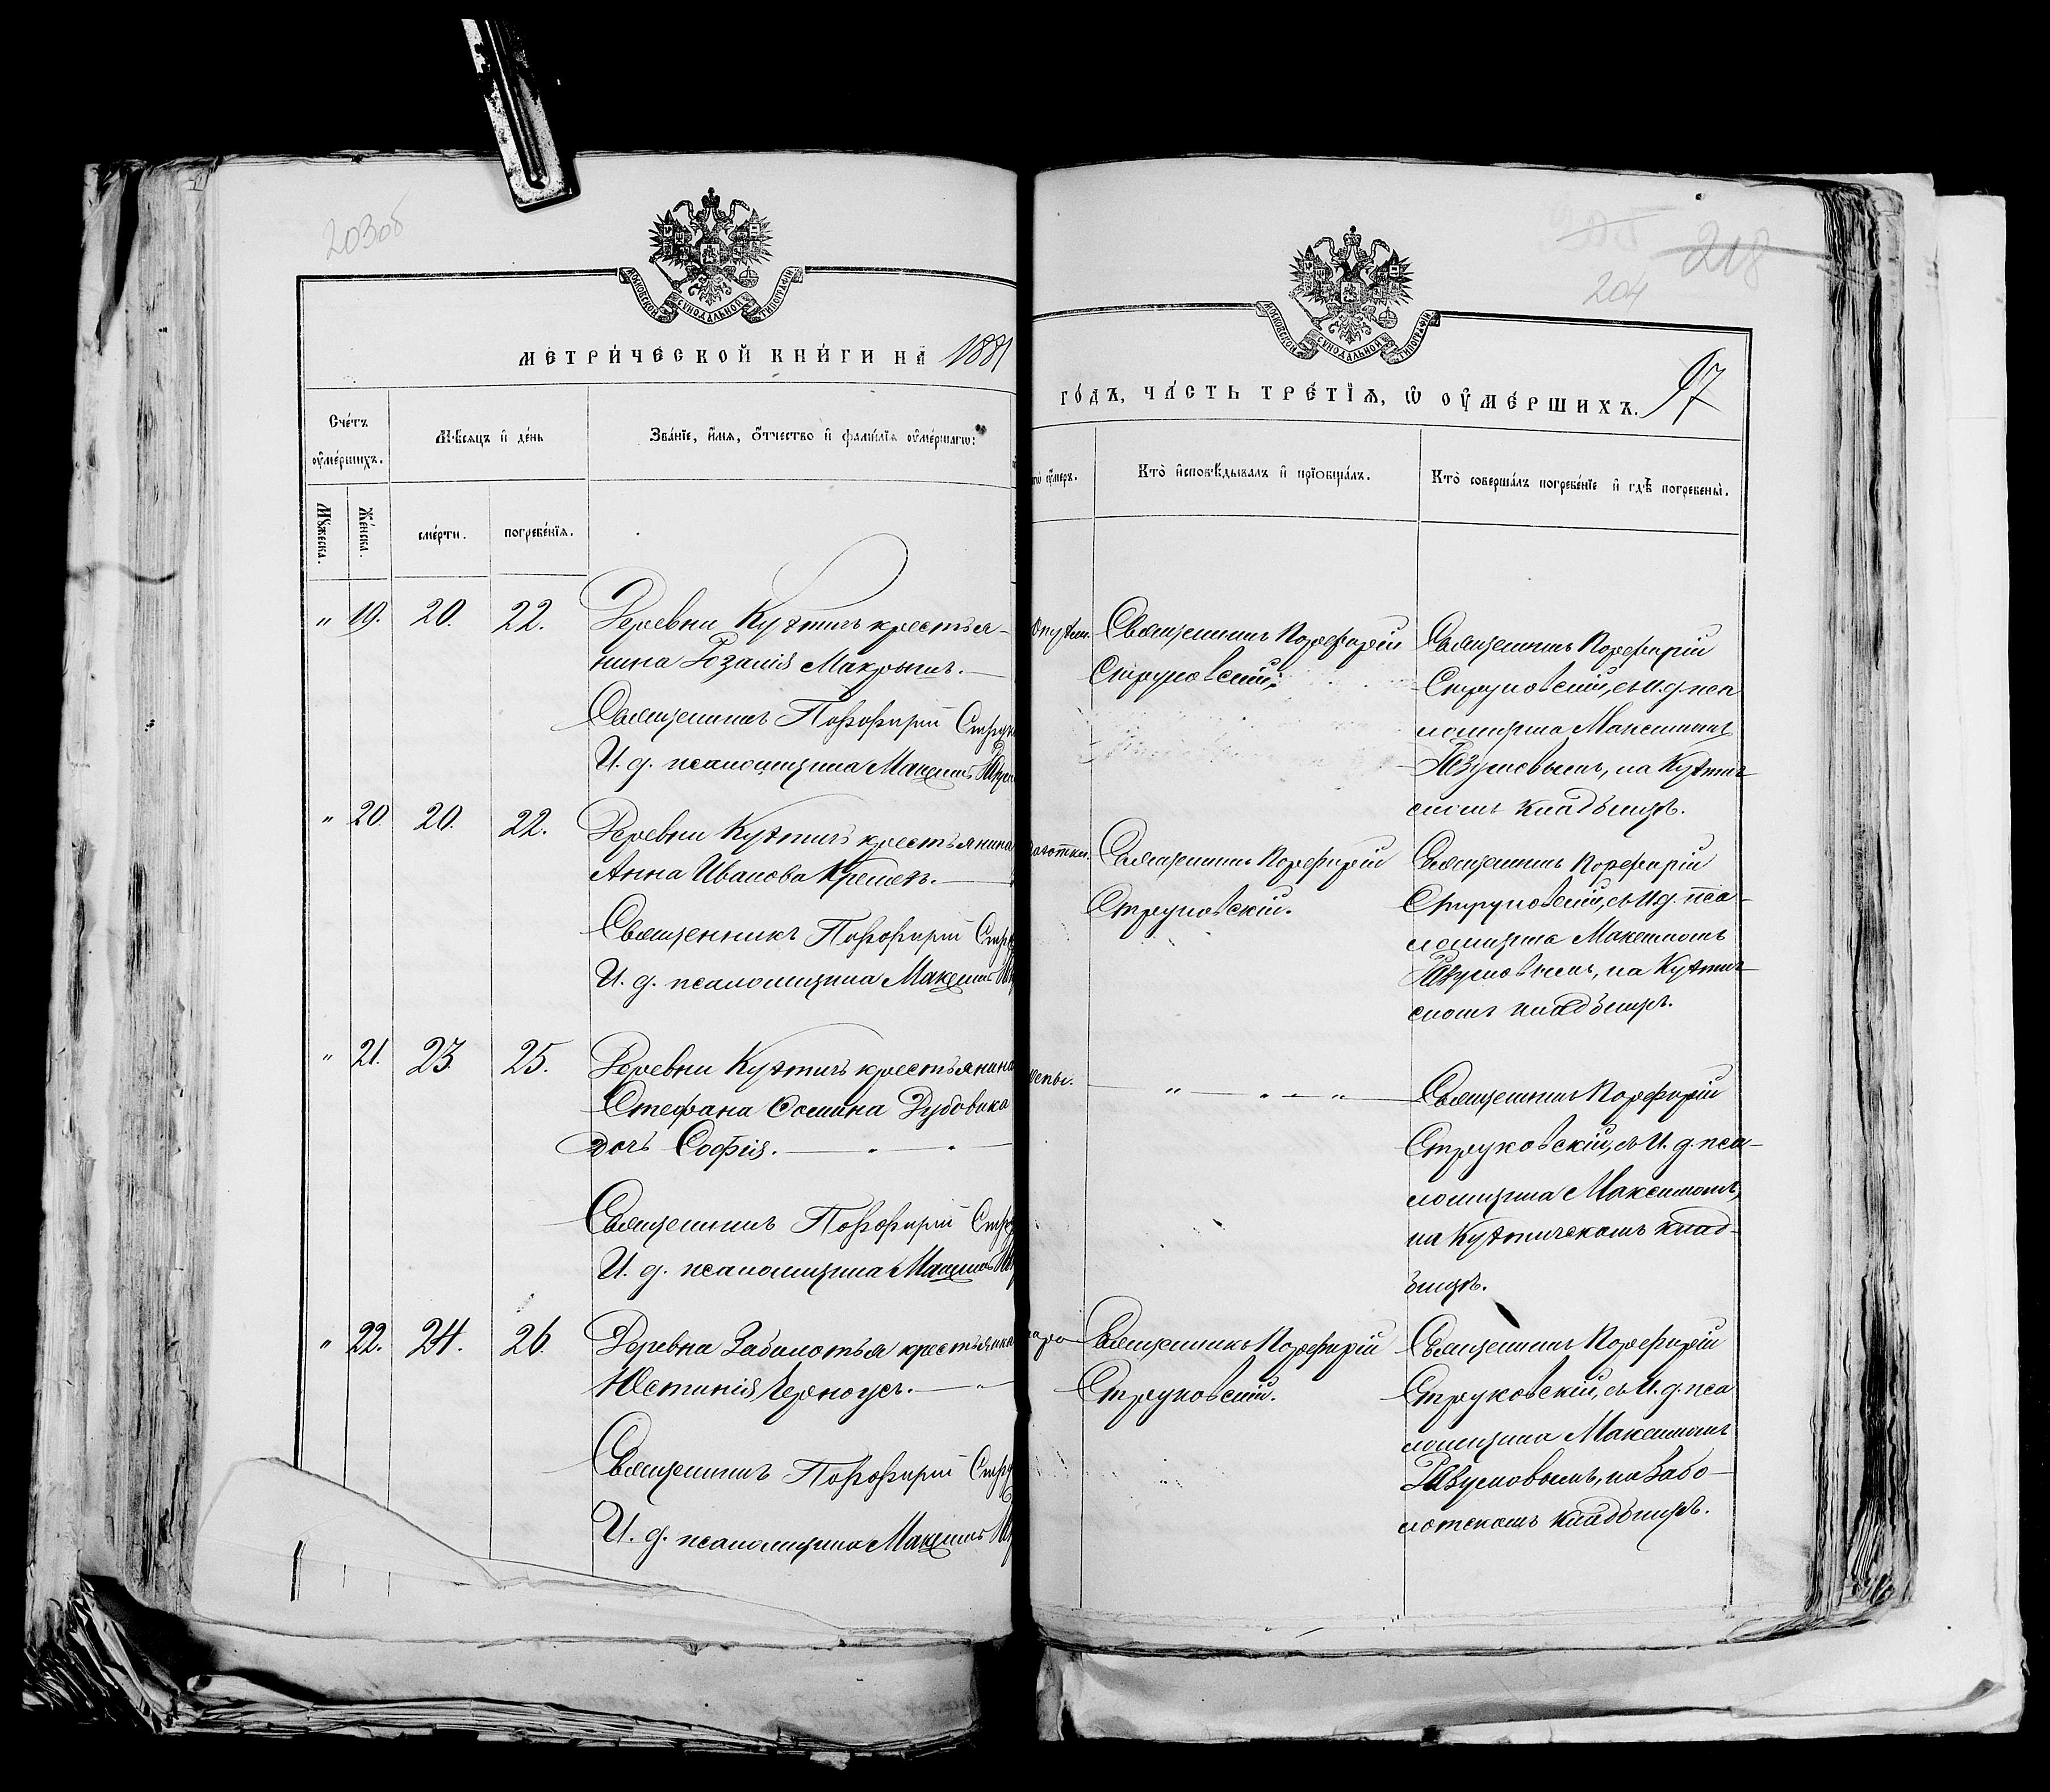 203об
МОСКОВСКОЙ СѴНОДАЛЬНОЙ ТИПОГРАФІИ
МЕТРИ́ЧЕСКОЙ КНИ́ГИ НА 1881
Сче́тъ ᲂу҆ме́ршихъ.
Мѣ́сяцъ и҆ де́нь
Зва́нїе, и҆́мя, ѻ҆́тчество и҆ фами́лїя ᲂу҆ме́ршагѡ:
Мꙋ́жеска.
Же́нска.
сме́рти.
погребе́нїя.
" 19. 20. 22. Деревни Кутичъ крестья-
нина Розалія Макрыть.
Священникъ Порфирій
И. д. псаломщика Максимъ
" 20. 20. 22. Деревни Кутичъ крестьянина
Анна Иванова Кремезъ.
Священникъ Порфирій
И. д. псаломщика Максимъ
" 21. 23. 25. Деревни Кутичъ крестьянина
Стефана Осипова Дубовика
дочь Софія.
Священникъ Порфирій
И. д. псаломщика Максимъ
" 22. 24. 26. Деревни Заболотья крестьянка
Юстинія Черноусъ.
Священникъ Порфирій
И. д. псаломщика Максимъ
218
204
МОСКОВСКОЙ СѴНОДАЛЬНОЙ ТИПОГРАФІИ
ГО́ДЪ, ЧА́СТЬ ТРЕ́ТЇѦ, Ѡ҆ ОУ҆МЕ́РШИХЪ. 97
ᲂу҆́меръ.
Кто̀ и҆сповѣ́дывалъ и҆ прїѻбща́лъ.
Кто̀ соверша́лъ погребе́нїе и҆ гдѣ̀ погребены̀.
Священникъ Порфирій
Струковскій.
Священникъ Порфирій
Струковскій, съ И. д. пса
ломщика Максимомъ
на Кутич-
скомъ кладбищѣ.
Священникъ Порфирій
Струковскій.
Священникъ Порфирій
Струковскій, съ И. д. пса-
ломщика Максимомъ
на Кутич-
скомъ кладбищѣ.
" " Священникъ Порфирій
Струковскій, съ И. д. пса-
ломщика Максимомъ,
на Кутичскомъ клад-
бищѣ.
Священникъ Порфирій
Струковскій.
Священникъ Порфирій
Струковскій, съ И. д. пса
ломщика Максимомъ
на Забо-
лотскомъ кладбищѣ.